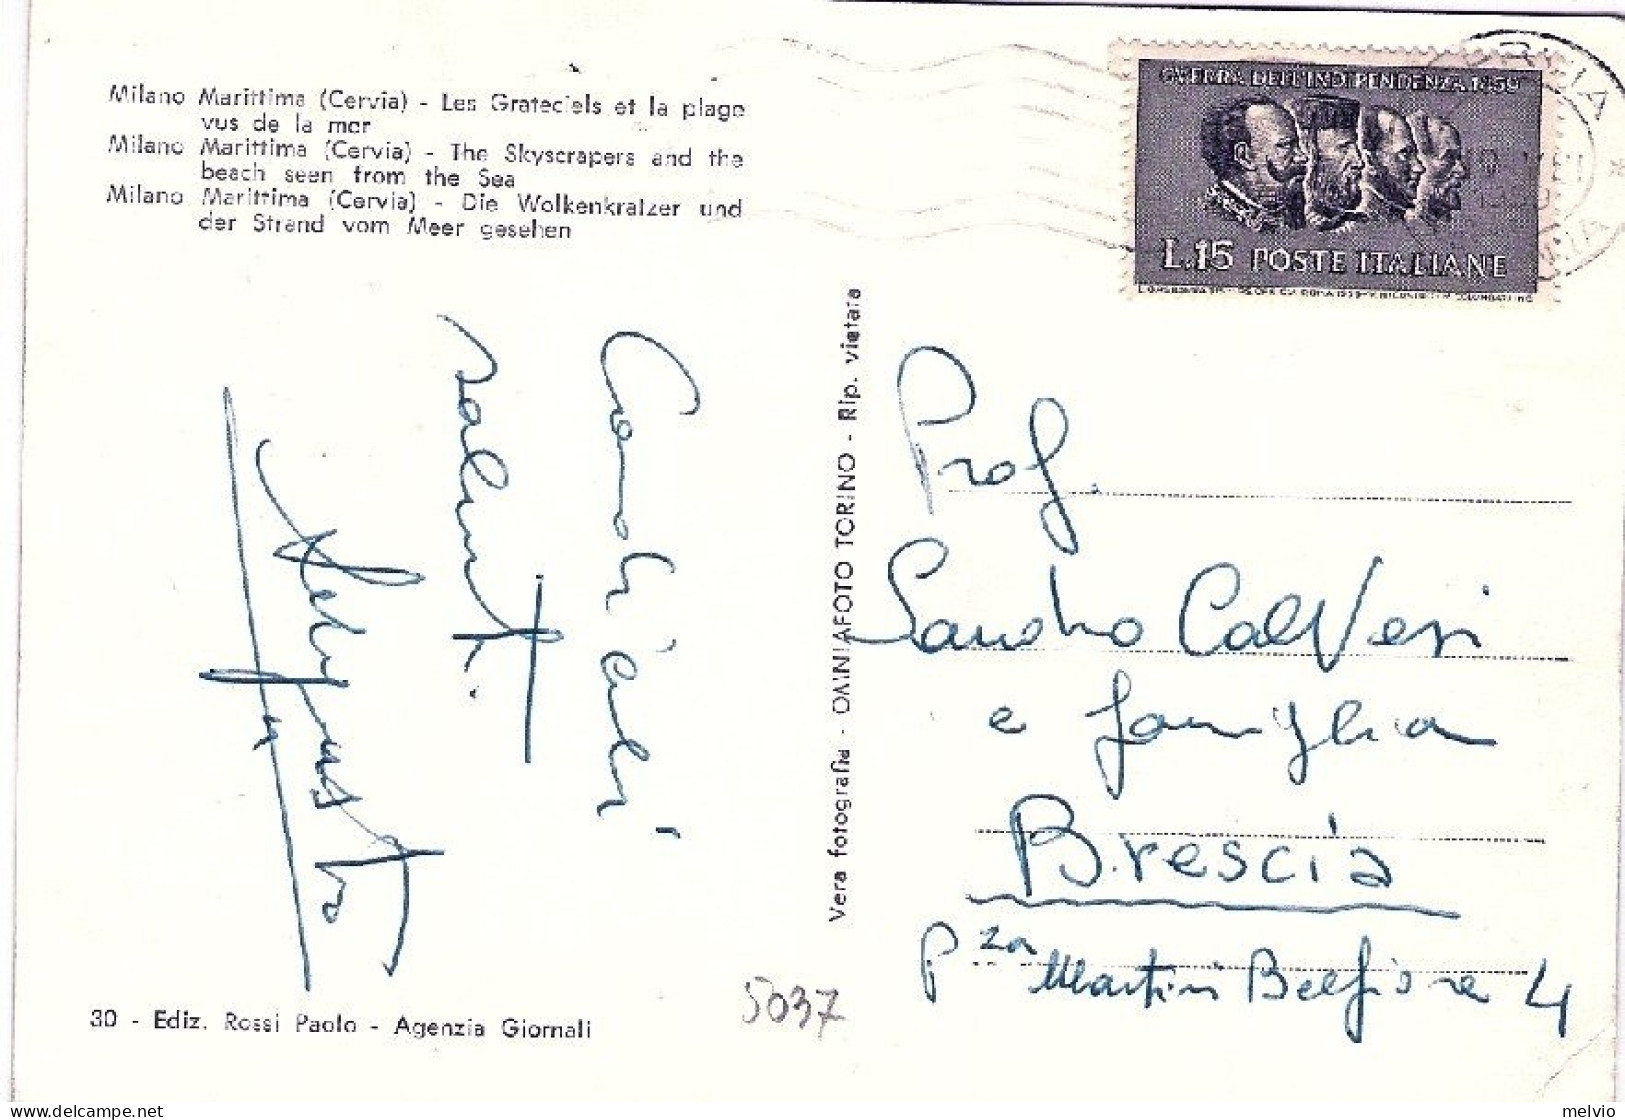 Milano Marittima (Cervia) - Les Grateciels et la plage
vus de la mer
Milano Marittima (Cervia) - The Skyscrapers and the
beach seen from the Sea
Milano Marittima (Cervia) - Die Wolkenkratzer und
der Strand vom Meer gesehen
GVERRA DELL'INDIPENDENZA 1859
L.15 POSTE ITALIANE
Cordiali
saluti
Vera fotografia - DAINIAFOTO TORINO - Rip. vietata
Prof.
Sandro Calvesi
e famiglia
Brescia
P.zza Martiri Belfiore 4
5037
30 - Ediz. Rossi Paolo - Agenzia Giornali
melvio